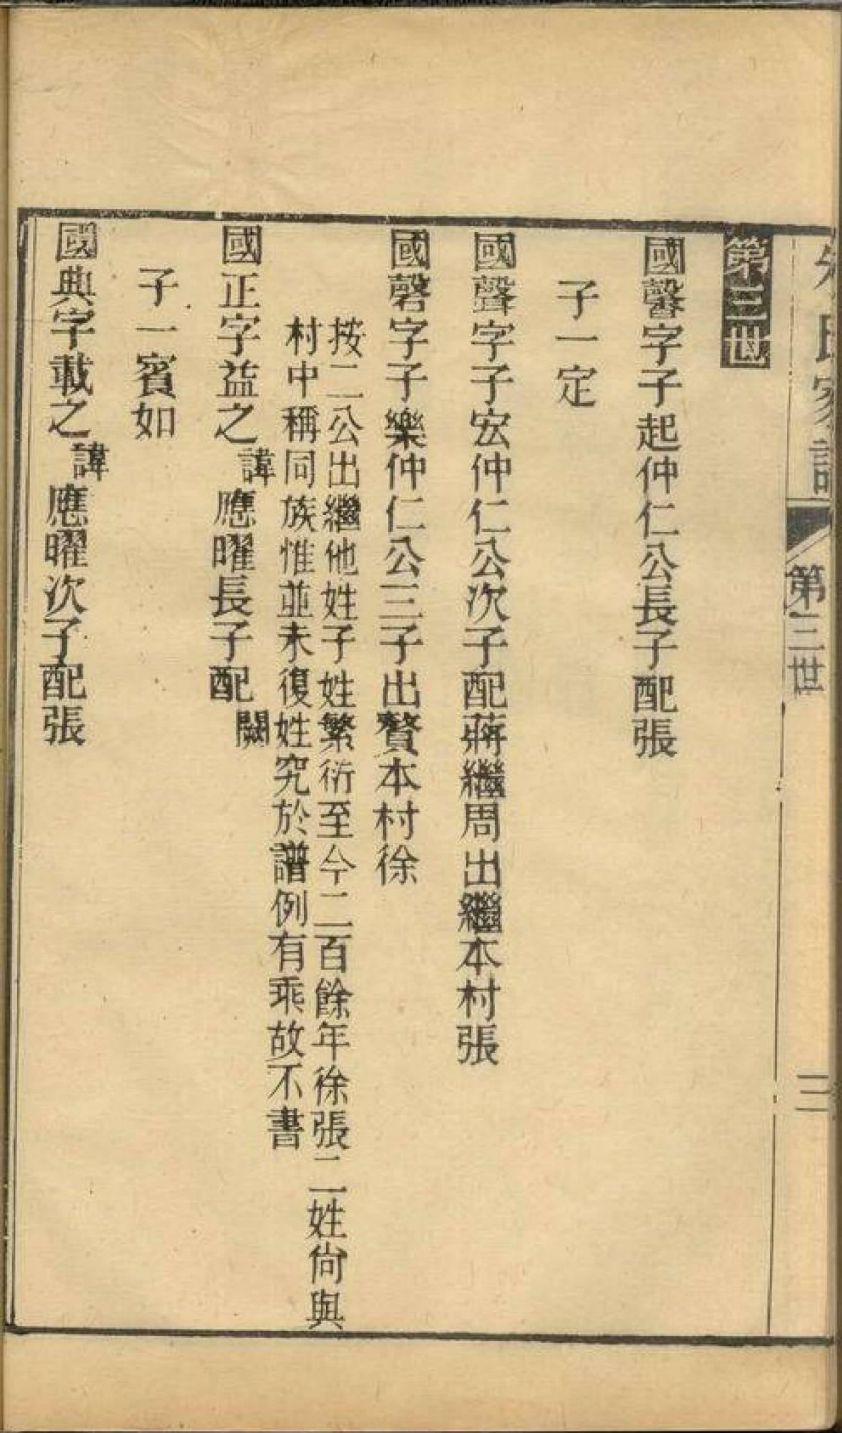 氏家譜
第三世
三
第三世
國馨字子起仲仁公長子配張
子一定
國聲字子宏仲仁公次子配蔣繼周出繼本村張
國磬字子樂仲仁公三子出贅本村徐
按二公出繼他姓子姓繁衍至今二百餘年徐張二姓尙與
村中稱同族惟並未復姓究於譜例有乖故不書
國正字益之諱應曜長子配闕
子一賓如
國典字載之諱應曜次子配張